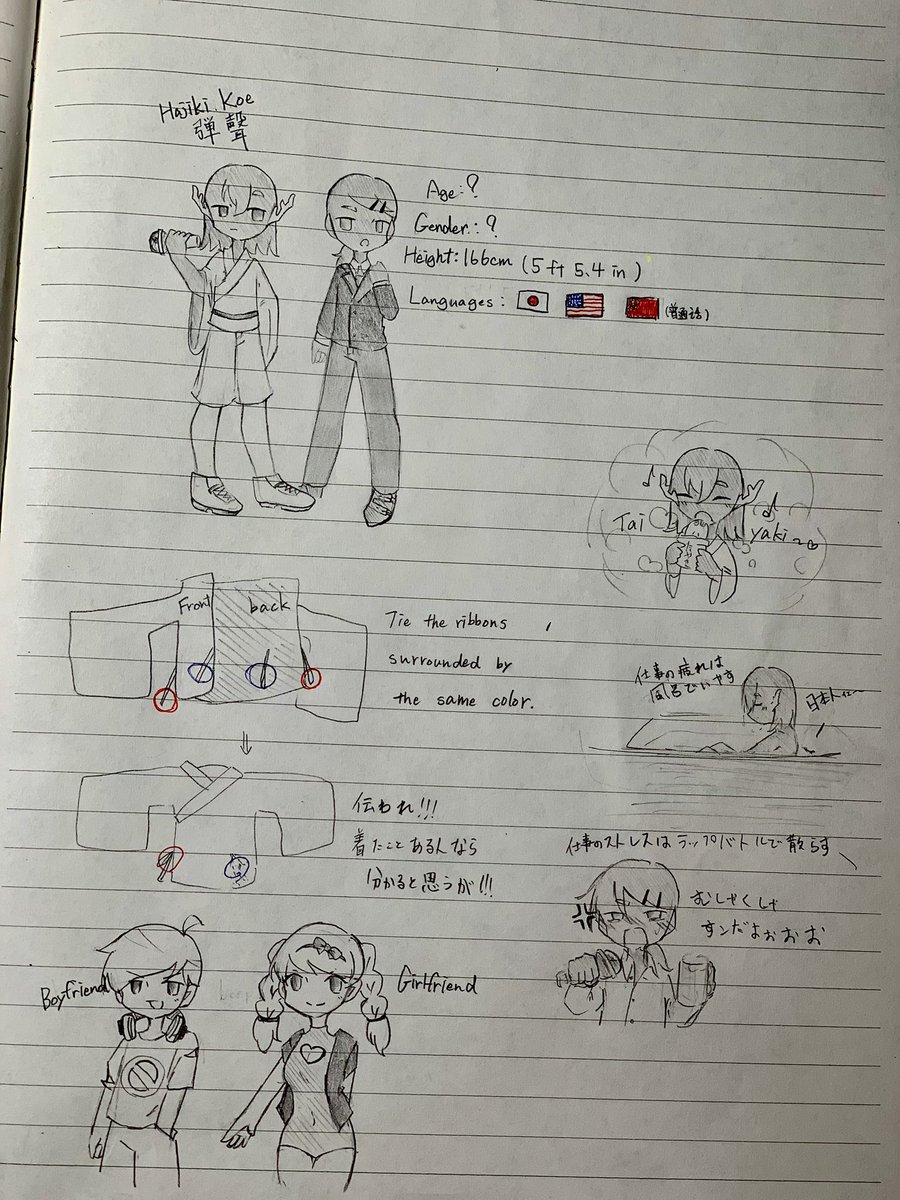 Hajiki Koe
弾聲
Age:?
Gender:?
Height:166cm (5 ft 5.4 in)
Languages:
(普通话)
♪ Tai yaki~ ♪
Front back
Tie the ribbons
surrounded by
the same color.
⇓
仕事の疲れは
風呂でいやす
日本人
伝われ!!!
着たことあるんなら
分かると思うが!!!
仕事のストレスはラップバトルで散らす
むしゃくしゃ
すンだよぉぉぉ
Boyfriend
beep
Girlfriend